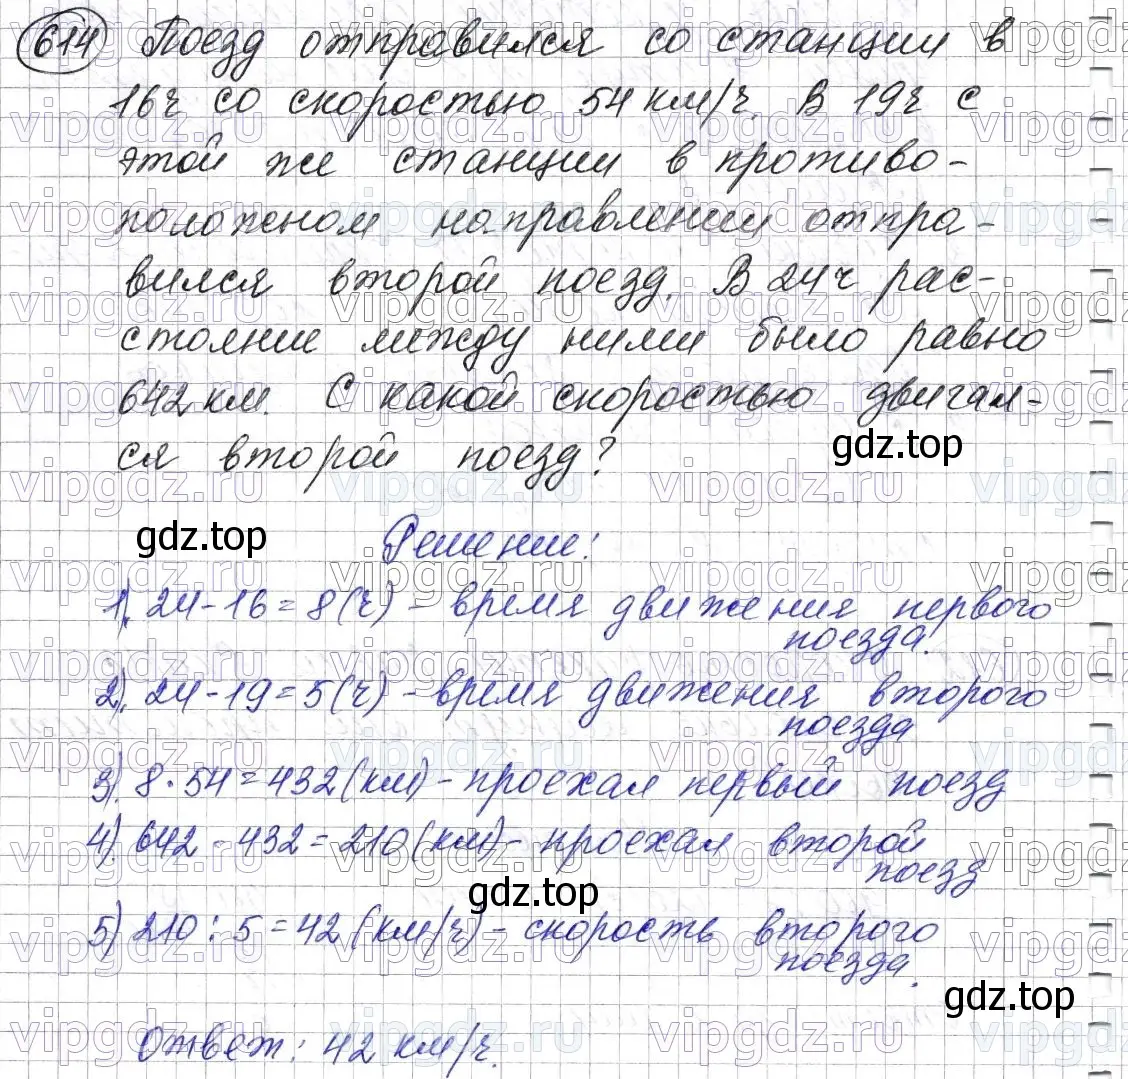 614 Поезд отправился со станции в
16ч со скоростью 54 км/ч. В 19ч с
этой же станции в противо-
положном направлении отпра-
вился второй поезд. В 24ч рас-
стояние между ними было равно
642 км. С какой скоростью двигал-
ся второй поезд?
gdz.top
gdz.top
Решение:
1). 24-16=8(ч) - время движения первого
поезда.
2). 24-19=5(ч) - время движения второго
поезда
3). 8·54=432(км) - проехал первый поезд
4). 642-432=210(км) - проехал второй
поезд
gdz.top
5) 210:5=42(км/ч) - скорость второго
поезда.
gdz.top
Ответ: 42 км/ч.
vipgdz.ru